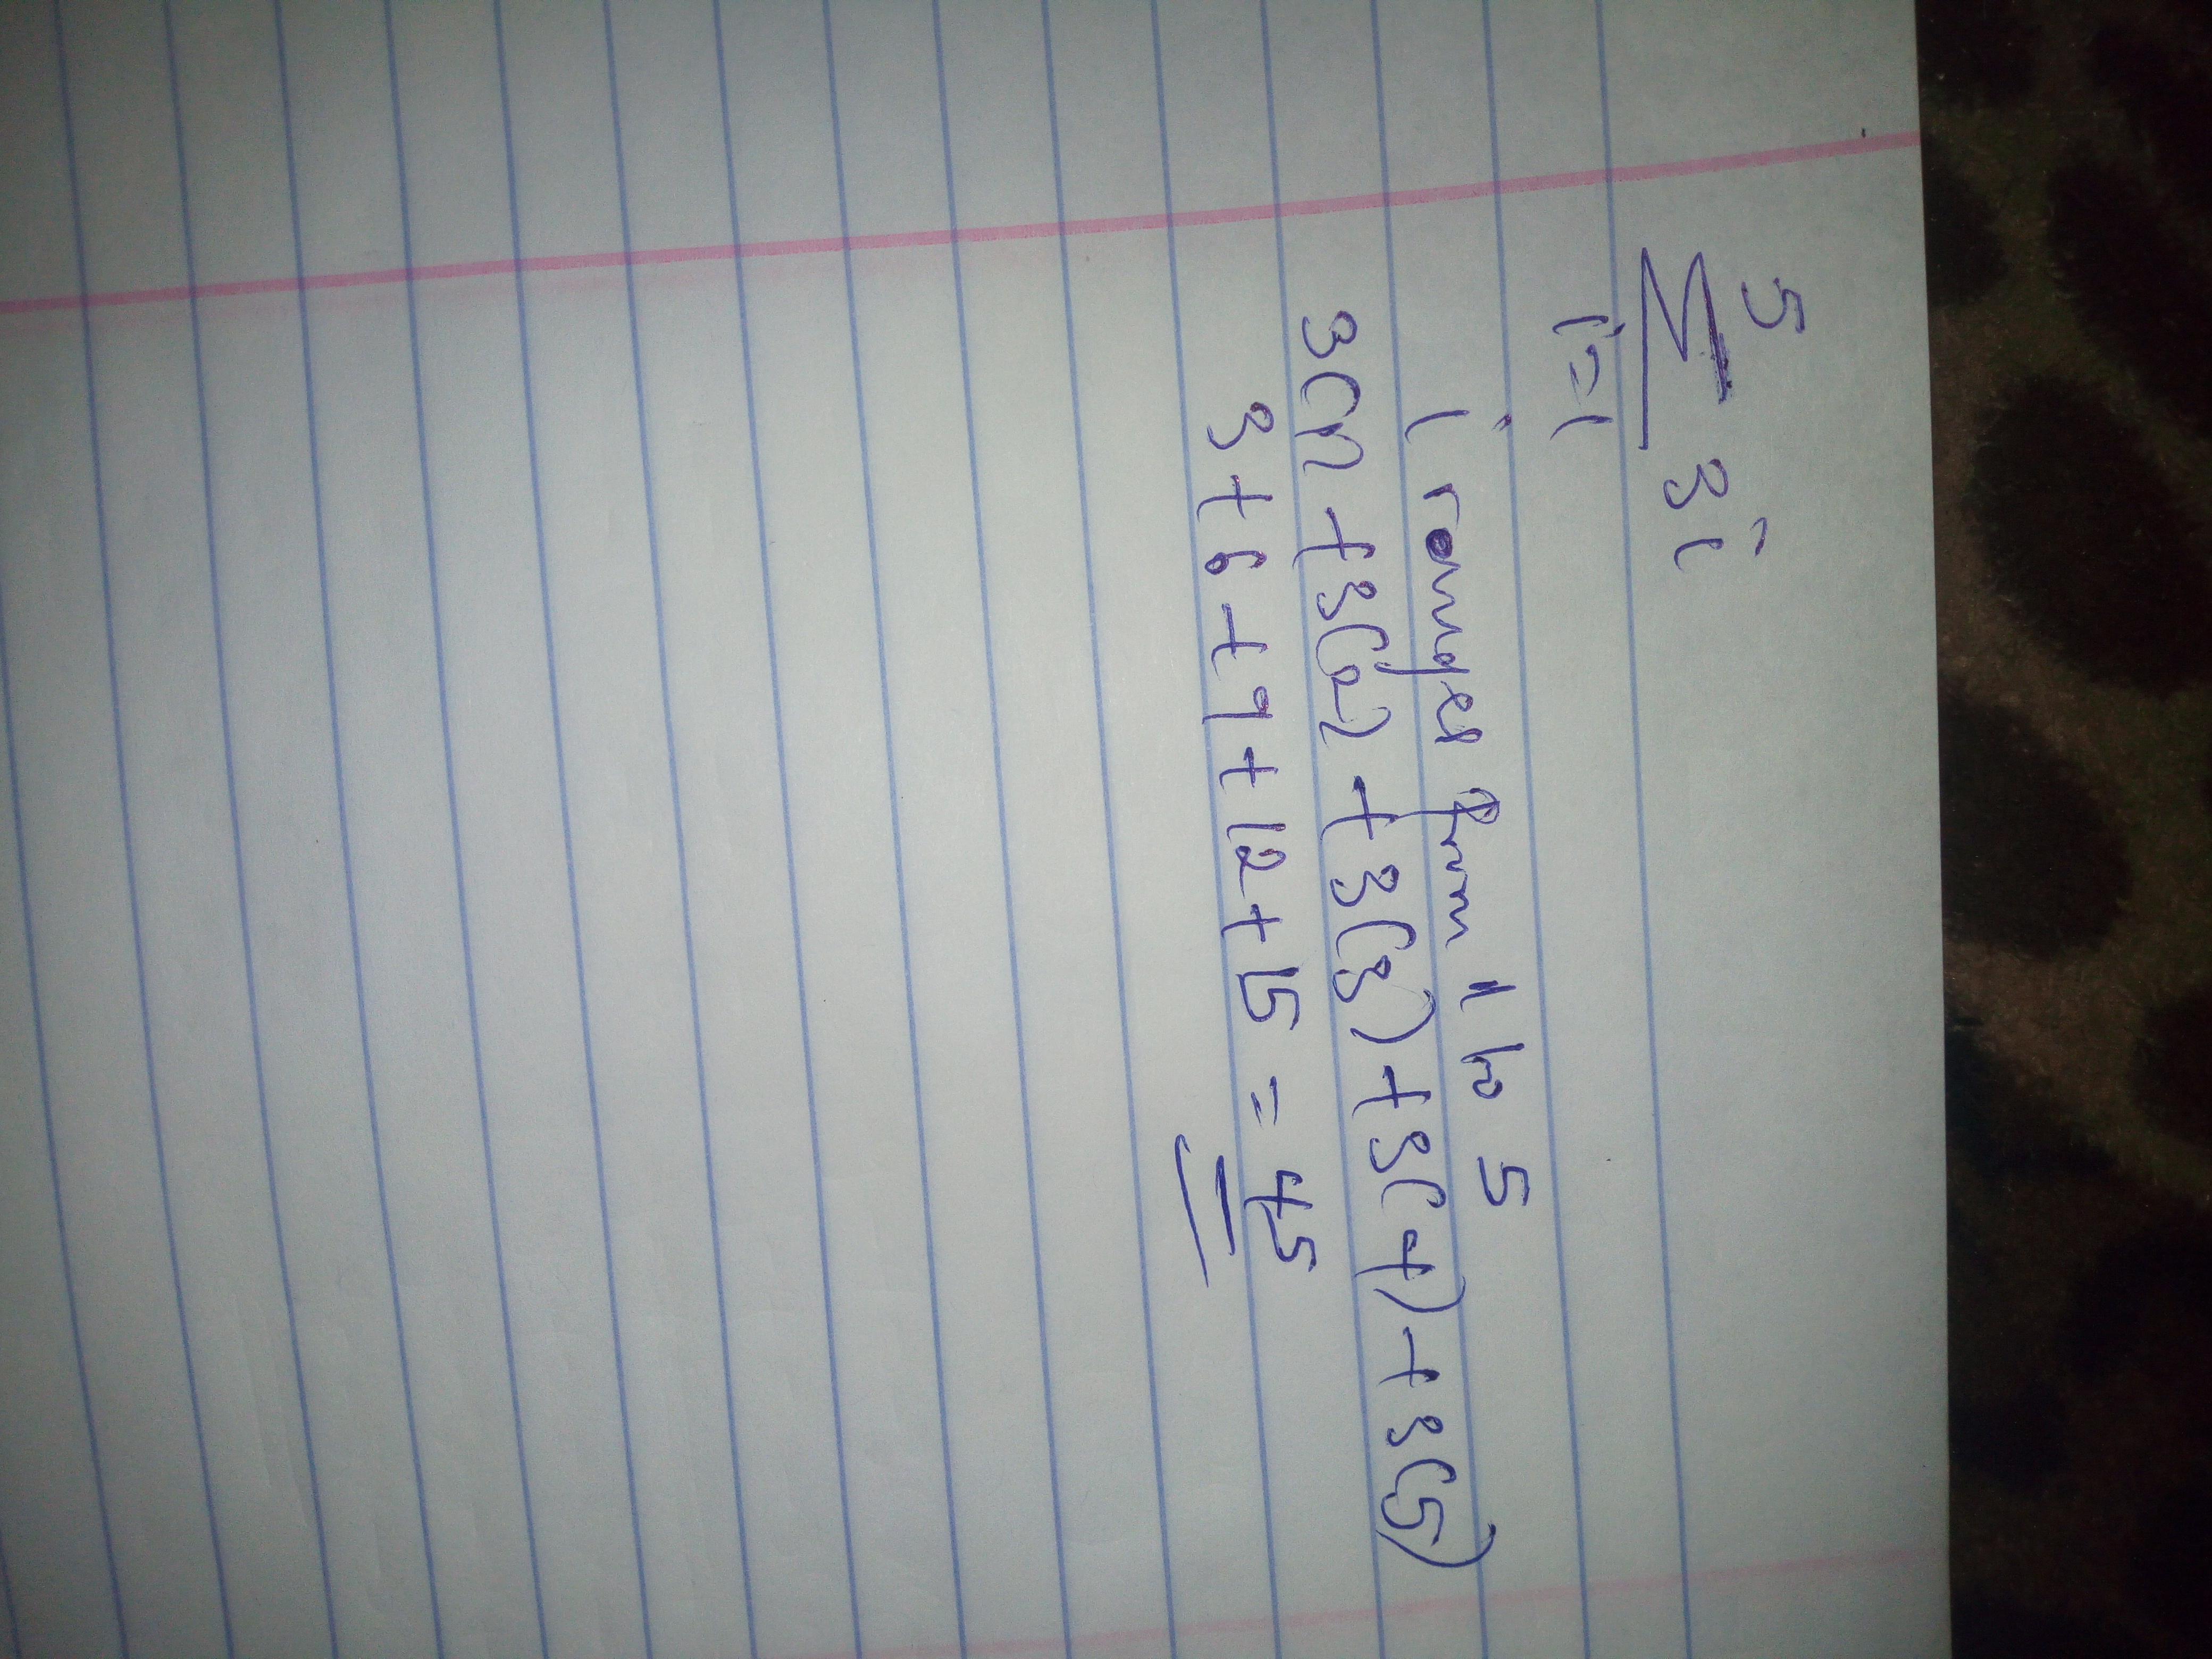 5
Σ 3i
i=1
i ranges from 1 to 5
3(1) + 3(2) + 3(3) + 3(4) + 3(5)
3 + 6 + 9 + 12 + 15 = 45